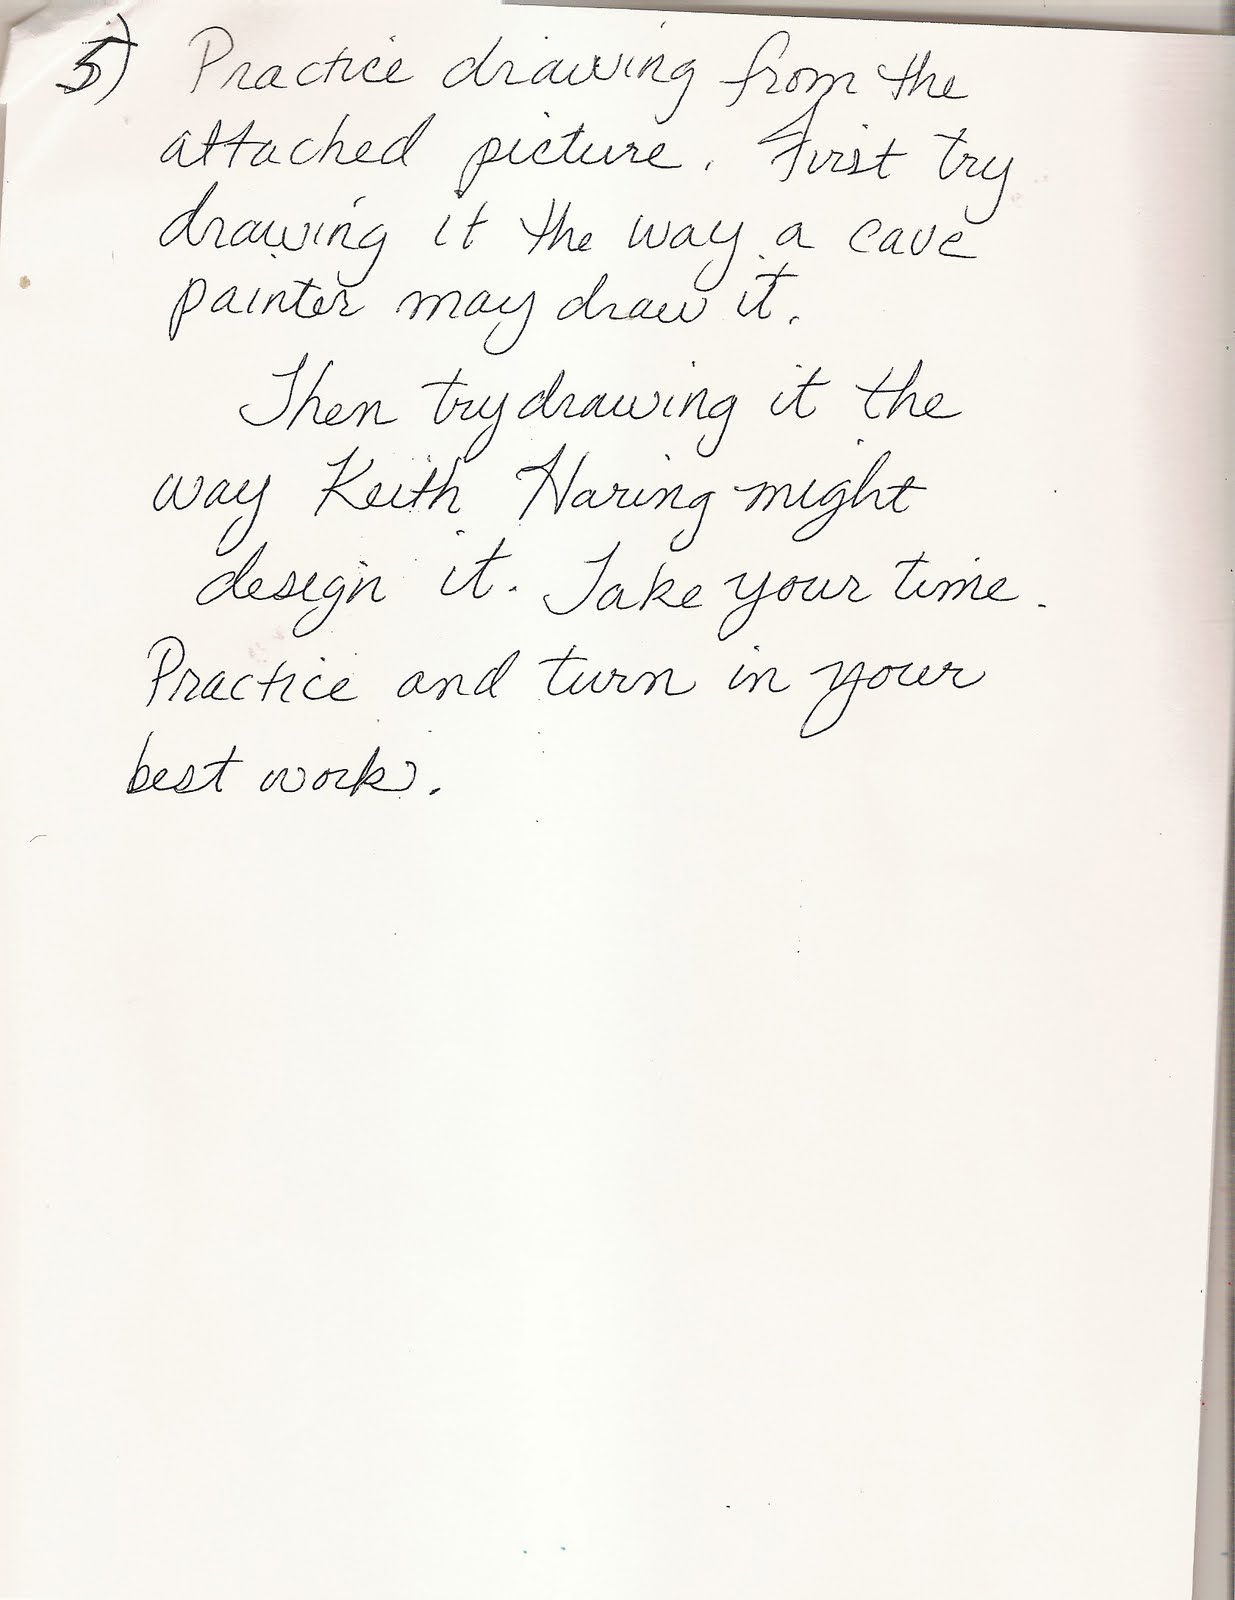 5) Practice drawing from the
attached picture. First try
drawing it the way a cave
painter may draw it.
Then try drawing it the
way Keith Haring might
design it. Take your time.
Practice and turn in your
best work.